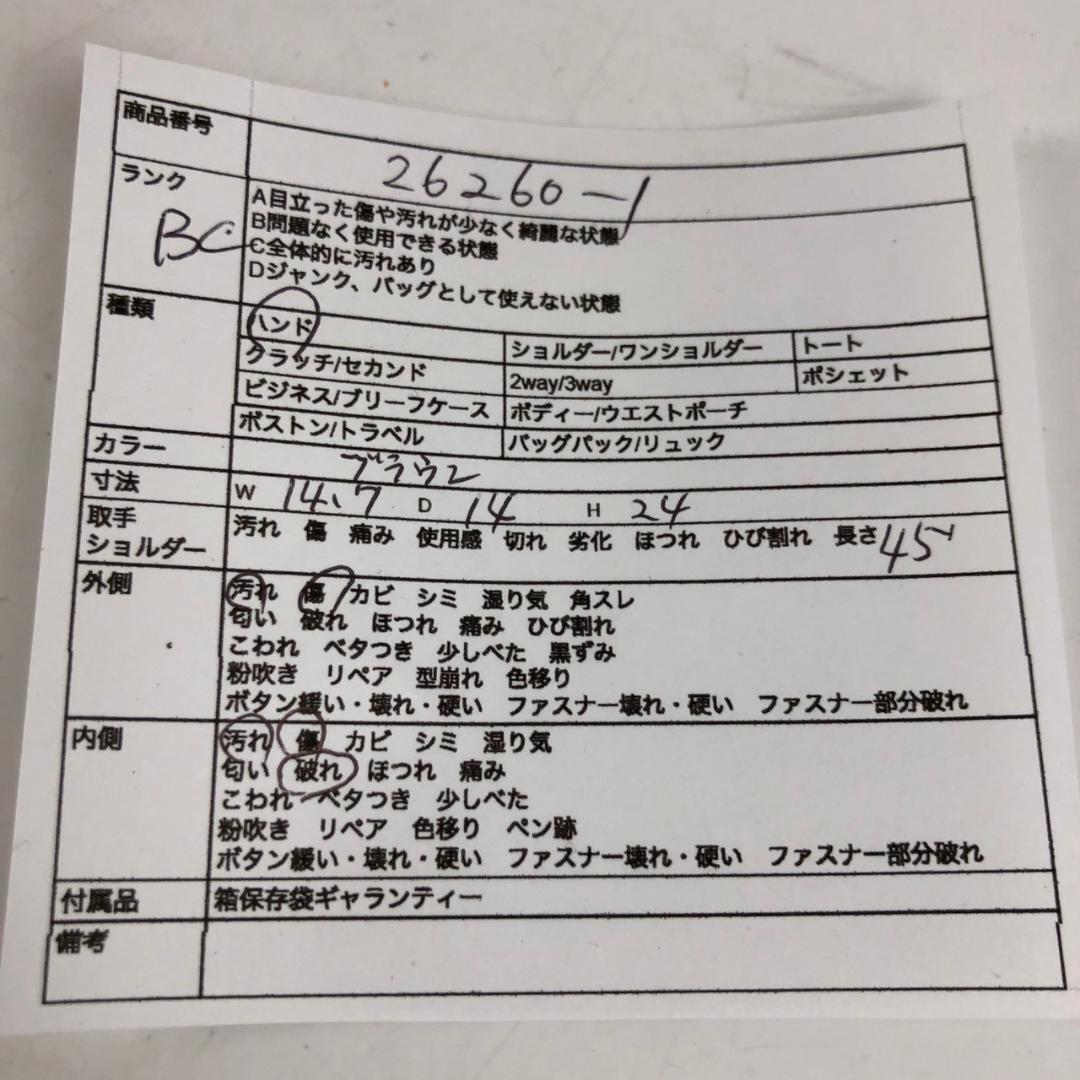 商品番号 26260-1
ランク BC
A目立った傷や汚れが少なく綺麗な状態
B問題なく使用できる状態
C全体的に汚れあり
Dジャンク、バッグとして使えない状態
種類 ハンド
ショルダー/ワンショルダー トート
クラッチ/セカンド 2way/3way ポシェット
ビジネス/ブリーフケース ボディー/ウエストポーチ
ボストン/トラベル バッグパック/リュック
カラー ブラウン
寸法 W 14.7 D 14 H 24
取手
ショルダー
汚れ 傷 痛み 使用感 切れ 劣化 ほつれ ひび割れ 長さ45
外側 汚れ 傷 カビ シミ 湿り気 角スレ
匂い 破れ ほつれ 痛み ひび割れ
こわれ ベタつき 少しべた 黒ずみ
粉吹き リペア 型崩れ 色移り
ボタン緩い・壊れ・硬い ファスナー壊れ・硬い ファスナー部分破れ
内側 汚れ 傷 カビ シミ 湿り気
匂い 破れ ほつれ 痛み
こわれ ベタつき 少しべた
粉吹き リペア 色移り ペン跡
ボタン緩い・壊れ・硬い ファスナー壊れ・硬い ファスナー部分破れ
付属品 箱保存袋ギャランティー
備考